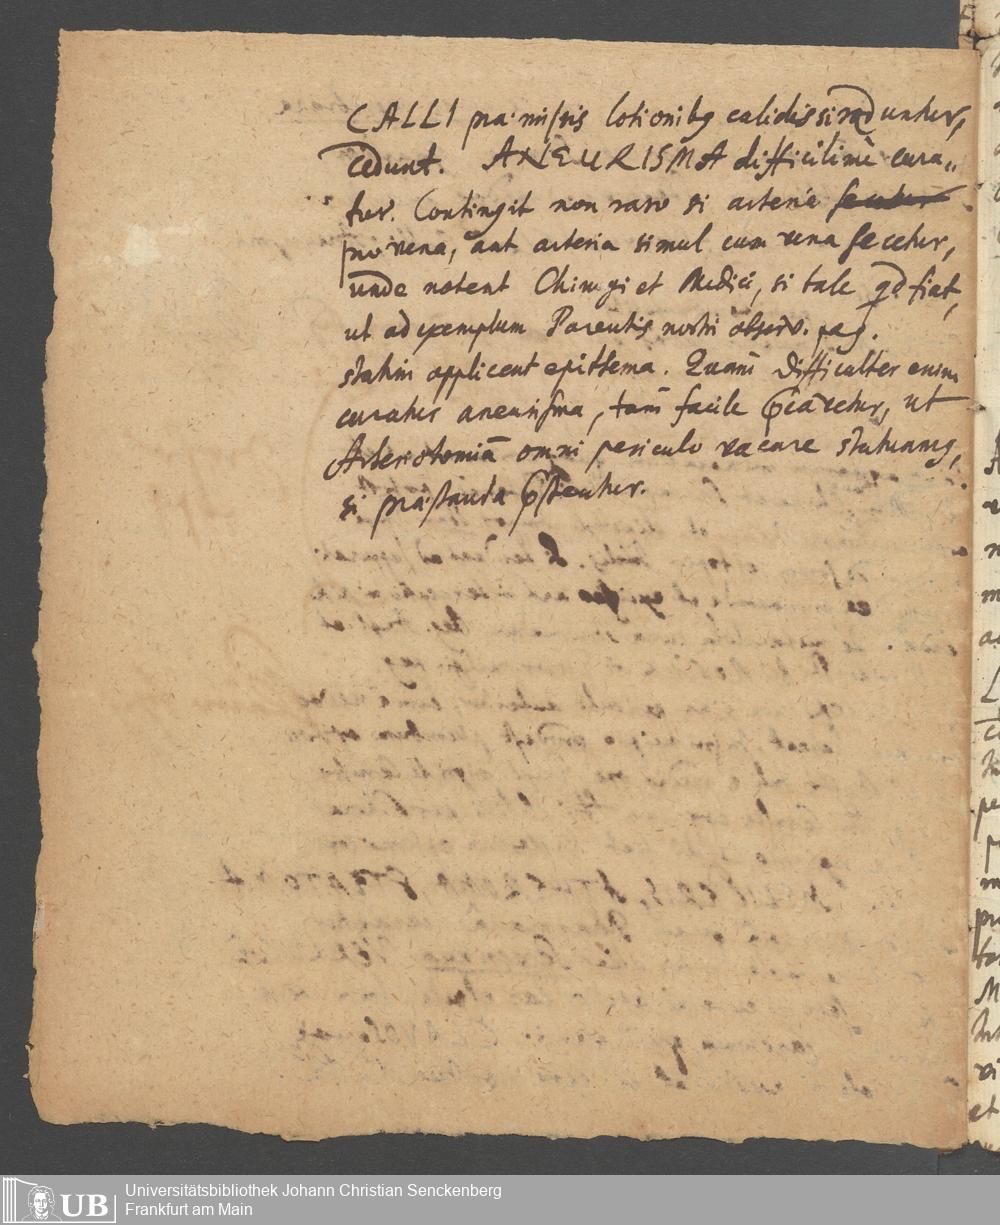 CALLI præmissis lotionibq calidis si raduntur,
cedunt. ANEURISMA difficilimè cura„
tur. Contingit non raro si arteria
pro vena, aut arteria simul cum vena secetur,
unde notent Chirurgi et Medici, si tale qd fiat,
ut ad exemplum Parentis nostri observ. pag.
statim applicent epithema. Quam difficulter enim
curatur aneurisma, tam facile ut
Arteriotomiā omni periculo vacare statuamq,
si præstanda
Universitätsbibliothek Johann Christian Senckenberg
Frankfurt am Main
UB